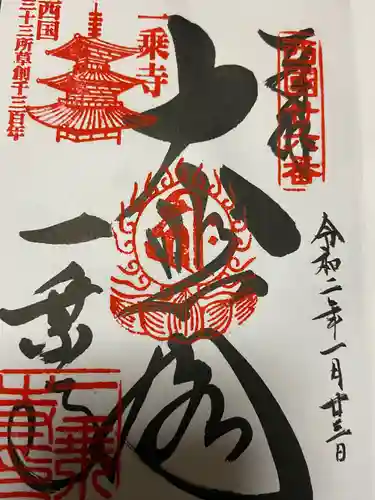 奉拝
西国廿六番
令和二年一月廿三日
大悲閣
一乗寺
西国
三十三所草創千三百年
一乗寺